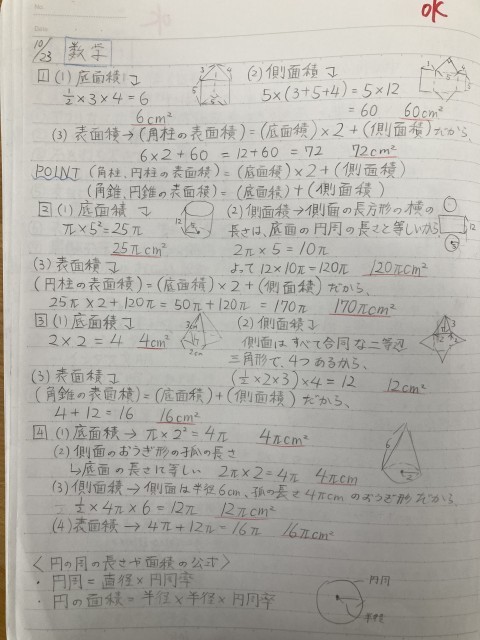 No.
Date
OK
10/23 数学
1 (1) 底面積↴ (2) 側面積↴
1/2×3×4=6 5×(3+5+4)=5×12
6cm² =60 60cm²
(3) 表面積→(角柱の表面積)=(底面積)×2+(側面積)だから、
6×2+60=12+60=72 72cm²
POINT (角柱、円柱の表面積)=(底面積)×2+(側面積)
(角錐、円錐の表面積)=(底面積)+(側面積)
2 (1) 底面積↴ (2) 側面積→側面の長方形の横の
π×5²=25π 長さは、底面の円周の長さと等しいから
25πcm² 2π×5=10π
(3) 表面積↴ よって12×10π=120π 120πcm²
(円柱の表面積)=(底面積)×2+(側面積)だから、
25π×2+120π=50π+120π=170π 170πcm²
3 (1) 底面積↴ (2) 側面積↴
2×2=4 4cm² 側面はすべて合同な二等辺
三角形で、4つあるから、
(3) 表面積↴ (1/2×2×3)×4=12 12cm²
(角錐の表面積)=(底面積)+(側面積)だから、
4+12=16 16cm²
4 (1) 底面積→π×2²=4π 4πcm²
(2) 側面のおうぎ形の弧の長さ
↳底面の長さに等しい 2π×2=4π 4πcm
(3) 側面積→側面は半径6cm、弧の長さ4πcmのおうぎ形だから、
1/2×4π×6=12π 12πcm²
(4) 表面積→4π+12π=16π 16πcm²
〈円の周の長さや面積の公式〉
・円周=直径×円周率
・円の面積=半径×半径×円周率
円周
半径